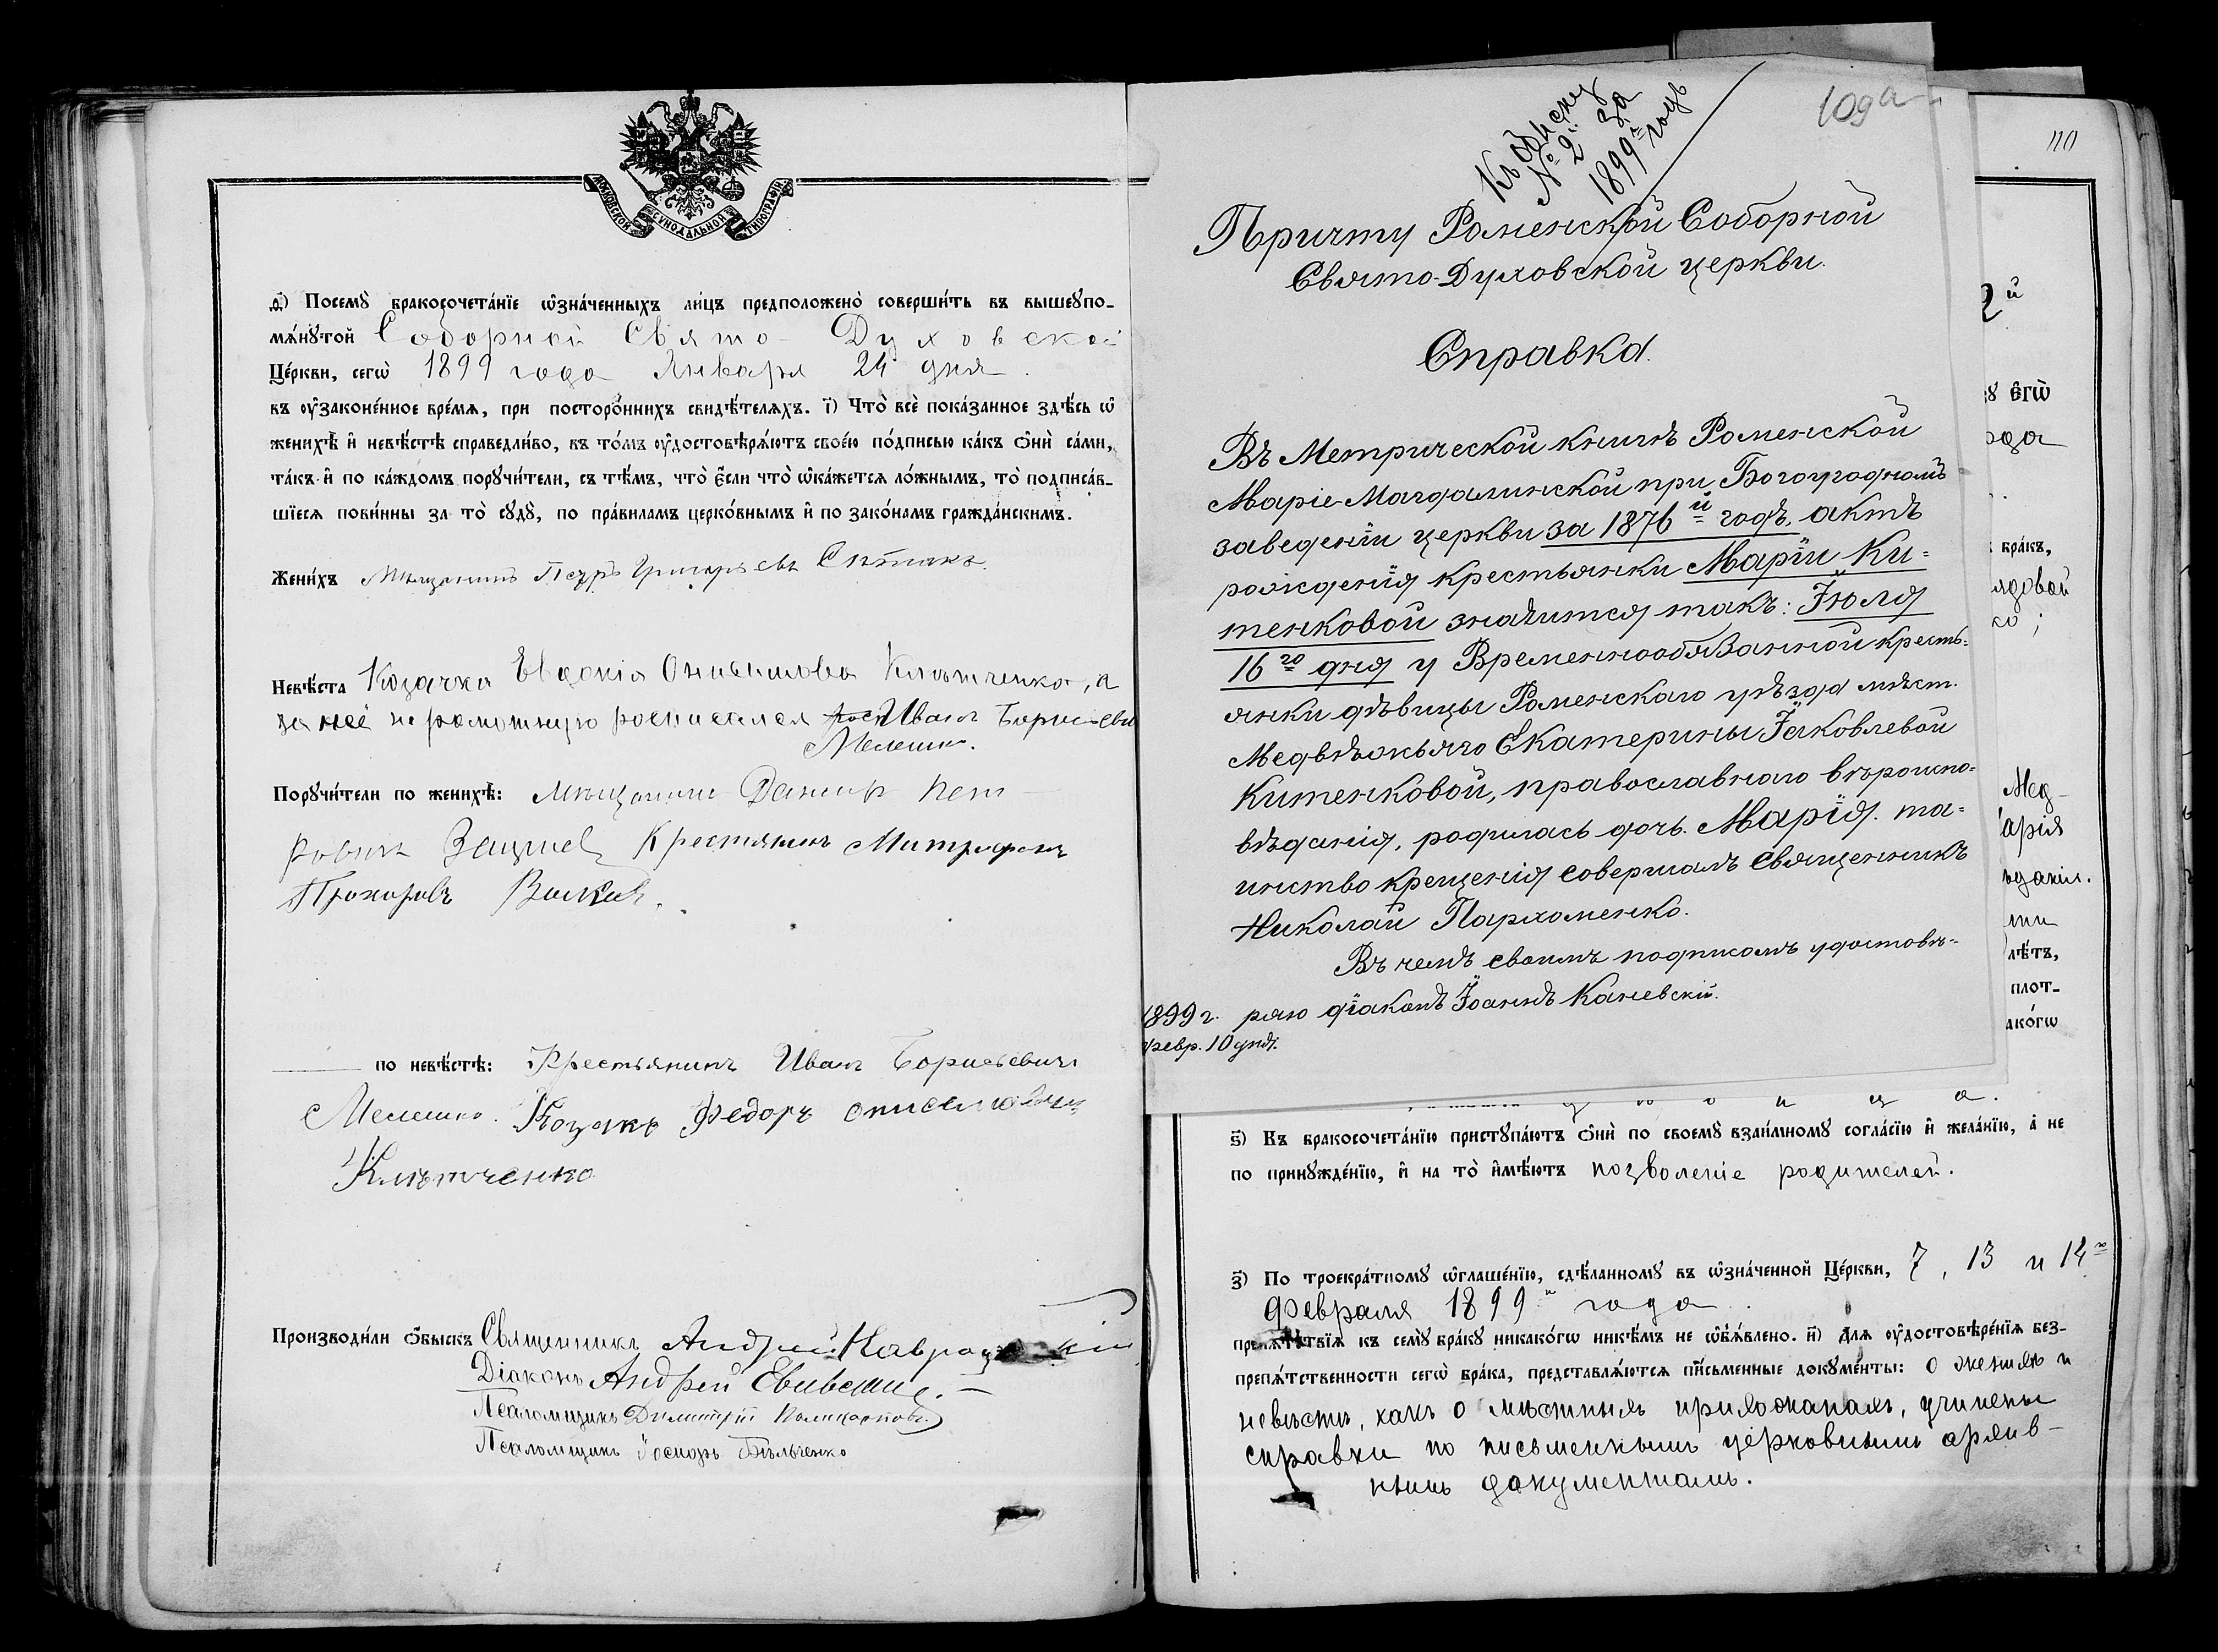 МОСКОВСКОЙ СѴНОДАЛЬНОЙ ТИПОГРАФІИ
д҃) Посемꙋ̀ бракосочета́нїе ѡ҆зна́ченныхъ ли́цъ предположено̀ соверши́ть въ вышеꙋпо-
мѧ́нꙋтой Соборной Свято-Духовской
Це́ркви, сегѡ̀ 1899 года Января 24 дня.
въ ᲂу҆законе́нное вре́мѧ, при посторо́ннихъ свидѣ́телѧхъ. і҃) Что̀ всѐ пока́занное здѣ́сь ѡ҆
женихѣ̀ и҆ невѣ́стѣ справедли́во, въ то́мъ ᲂу҆достовѣрѧ́ютъ свое́ю по́дписью ка́къ ѻ҆нѝ са́ми,
та́къ и҆ по ка́ждомъ порꙋчи́тели, съ тѣ́мъ, что̀ є҆́сли что̀ ѡ҆ка́жетсѧ ло́жнымъ, то̀ подписа́в-
шїесѧ пови́нны за то̀ сꙋдꙋ̀, по пра́виламъ церко́внымъ и҆ по зако́намъ гражда́нскимъ.
Жени́хъ Мѣщанинъ Петръ Григорьевъ
Невѣ́ста Козачка Евдокія Онисимова Клѣтченко, а
за неё неграмотную росписался Иванъ Борисьевъ
Мелешко.
Порꙋчи́тели по женихѣ̀: Мѣщанинъ Даниилъ Пет-
ровичъ Крестянинъ Митрофанъ
Прохоровъ Волковъ.
по невѣ́стѣ: Крестьянинъ Иванъ Борисьевичъ
Мелешко. Козакъ Федоръ Онисимовичъ
Клѣтченко
Производи́ли ѻ҆́быскъ Священникъ Андрей
Діаконъ Андрей
Псаломщикъ Димитрій Поликарповъ
Псаломщикъ Бѣльченко
109а
Къ обыску
№ 2й за
1899й годъ
Причту Роменской Соборной
Свято-Духовской церкви.
Справка.
Въ Метрической книгѣ Роменской
Маріе-Магдалинской при Богоугодномъ
заведеніи церкви за 1876й годъ, актъ
рожденія крестьянки Маріи Ки-
тенковой значится такъ: Іюля
16го дня у Временнообязанной кресть-
янки дѣвицы Роменскаго уѣзда мѣст.
Медвѣжьяго Екатерины Іаковлевой
Китенковой, православнаго вѣроиспо-
вѣданія, родилась дочь Марія. та-
инство крещенія совершалъ Священникъ
Николай Пархоменко.
Въ чемъ своимъ подписомъ удостовѣ-
ряю діаконъ Іоаннъ Каневскій.
1899 г.
Февр. 10 дня.
110
2й
є҆гѡ̀
года
бра́къ,
ядовой
Мед-
арія
лѣ́тъ,
плот-
ако́гѡ
ѕ҃) Къ бракосочета́нїю пристꙋпа́ютъ ѻ҆нѝ по своемꙋ̀ взаи́мномꙋ согла́сїю и҆ жела́нїю, а҆ не
по принꙋжде́нїю, и҆ на то̀ и҆мѣ́ютъ позволеніе родителей.
з҃) По троекра́тномꙋ ѡ҆глаше́нїю, сдѣ́ланномꙋ въ ѡ҆зна́ченной Це́ркви, 7, 13 и 14го
Февраля 1899й года
препѧ́тствїѧ къ семꙋ̀ бра́кꙋ никако́гѡ никѣ́мъ не ѡ҆б̾ѧ́влено. и҃) Длѧ ᲂу҆достовѣре́нїѧ без-
препѧ́тственности сегѡ̀ бра́ка, представлѧ́ютсѧ пи́сьменные докꙋме́нты: о женихѣ и
невѣстѣ, какъ о мѣстныхъ прихожанахъ, учинены
справки по письменнымъ церковнымъ архив-
нымъ документамъ.